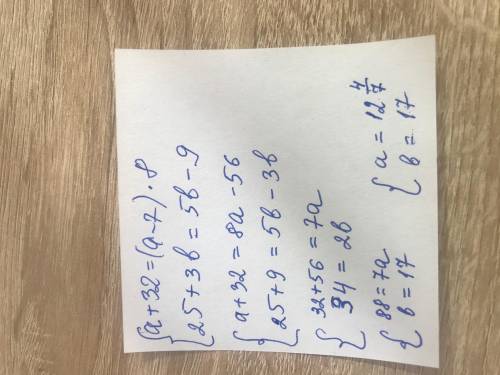 {a+32=(a-7)·8
{25+3b=5b-9
{a+32=8a-56
{25+9=5b-3b
{32+56=7a
{34=2b
{88=7a
{b=17
{a=12 4/7
{b=17